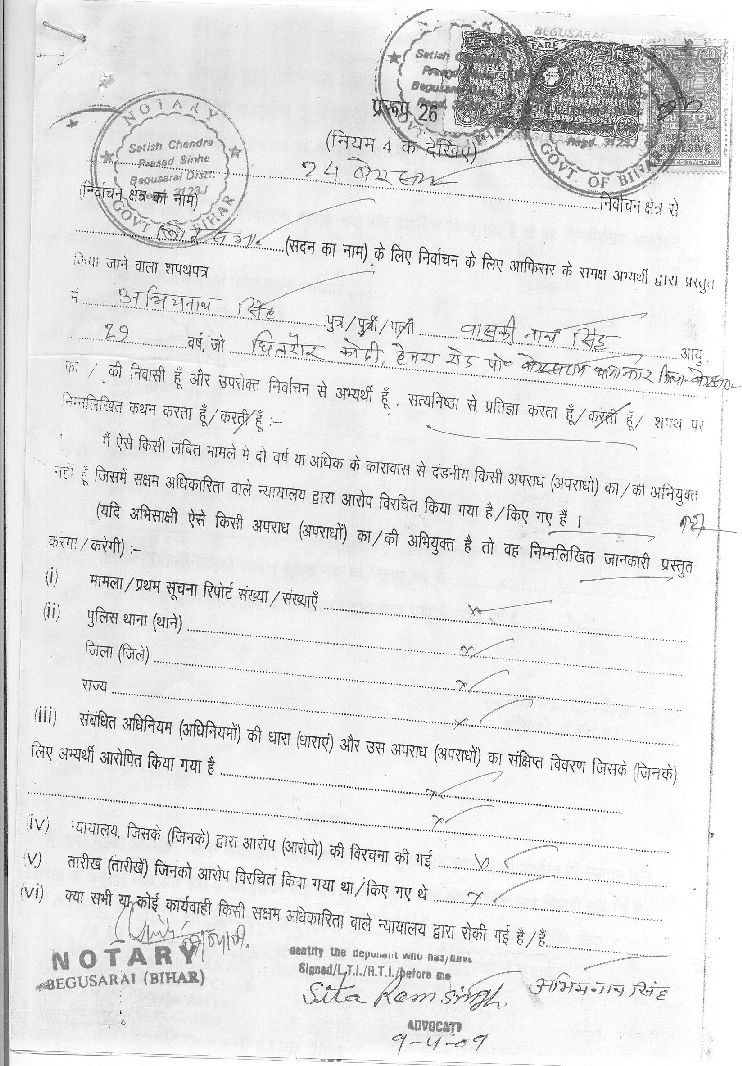 BEGUSARAI
NOTARY
Satish Chandra
Prasad Sinha
Begusarai Distt.
Regd. 3123J
GOVT OF BIHAR
Satish Chandra
Begusarai
GOVT BIHAR
FARE
Regd. 3123J
GOVT OF BIHAR
प्ररूप 26
(नियम 4 क देखिए)
24 निर्वाचन क्षेत्र से
(निर्वाचन क्षेत्र का नाम)
(सदन का नाम) के लिए निर्वाचन के लिए आफिसर के समक्ष अभ्यर्थी द्वारा प्रस्तुत
किया जाने वाला शपथपत्र
मैं सिंह पुत्र/पुत्री/पत्नी वासुकी नाथ सिंह आयु
29 वर्ष, जो रोड पो०
का / की निवासी हूँ और उपरोक्त निर्वाचन से अभ्यर्थी हूँ . सत्यनिष्ठा से प्रतिज्ञा करता हूँ/करती हूँ/ शपथ पर
निम्नलिखित कथन करता हूँ/करती हूँ :–
मैं ऐसे किसी लंबित मामले मे दो वर्ष या अधिक के कारावास से दंडनीय किसी अपराध (अपराधों) का/की अभियुक्त
नहीं हूँ जिसमें सक्षम अधिकारिता वाले न्यायालय द्वारा आरोप विरचित किया गया है/किए गए हैं । नहीं
(यदि अभिसाक्षी ऐसे किसी अपराध (अपराधों) का/की अभियुक्त है तो वह निम्नलिखित जानकारी प्रस्तुत
करेगा/करेगी) :–
(i) मामला/प्रथम सूचना रिपोर्ट संख्या/संख्याएँ x
(ii) पुलिस थाना (थाने) x
जिला (जिले) x
राज्य x
(iii) संबंधित अधिनियम (अधिनियमों) की धारा (धाराएं) और उस अपराध (अपराधों) का संक्षिप्त विवरण जिसके (जिनके)
लिए अभ्यर्थी आरोपित किया गया है x
x
(iv) न्यायालय, जिसके (जिनके) द्वारा आरोप (आरोपो) की विरचना की गई x
(v) तारीख (तारीखें) जिनको आरोप विरचित किया गया था/किए गए थे x
(vi) क्या सभी या कोई कार्यवाही किसी सक्षम अधिकारिता वाले न्यायालय द्वारा रोकी गई है/हैं
NOTARY
BEGUSARAI (BIHAR)
dentify the deponent who has/have
Signed/L.T.I./R.T.I./before me
Sita Ram Singh
ADVOCATE
9-4-09
सिंह